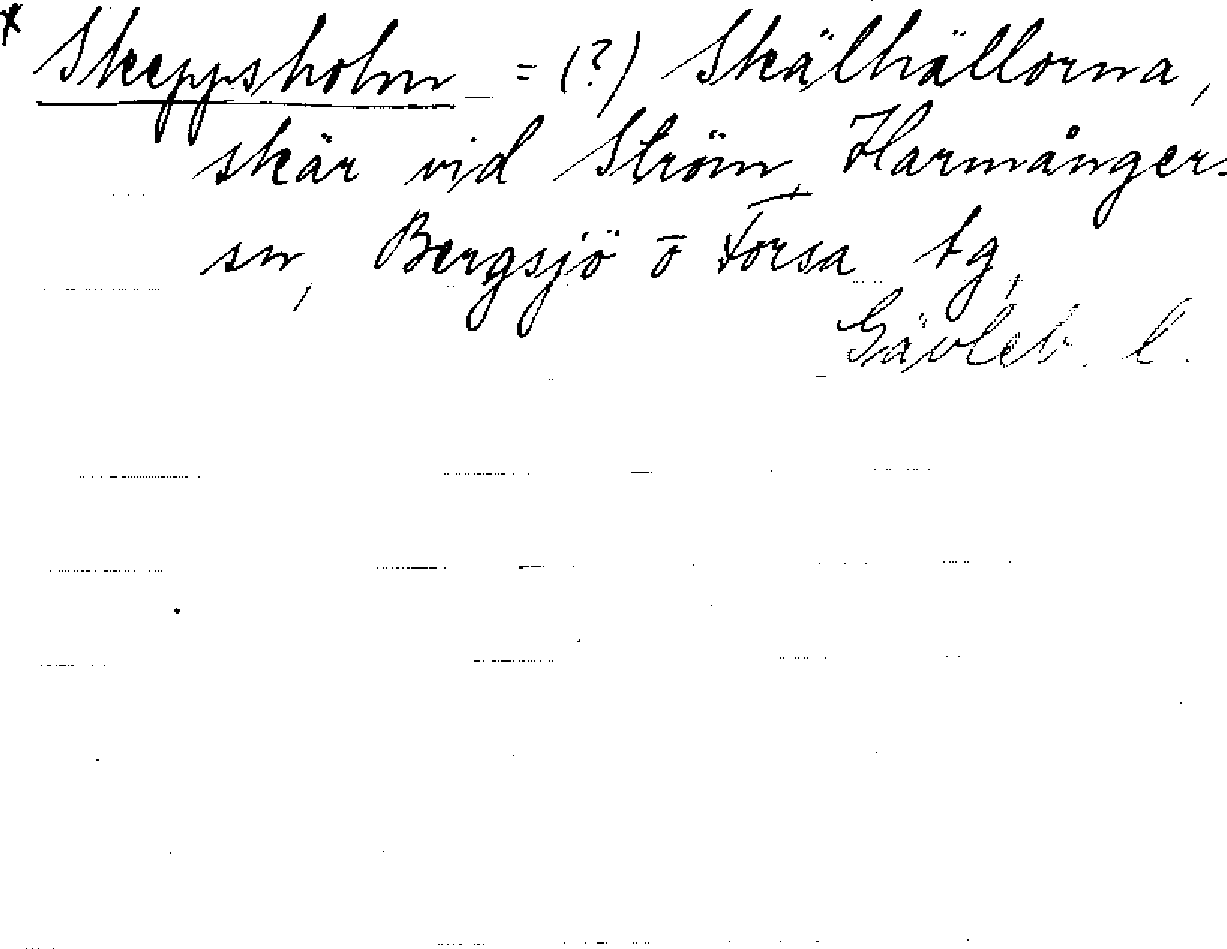 * Skeppsholm = (?) Skälhällorna,
skär vid Ström, Harmångers
sn, Bergsjö o Forsa tg,
Gävleb. l.